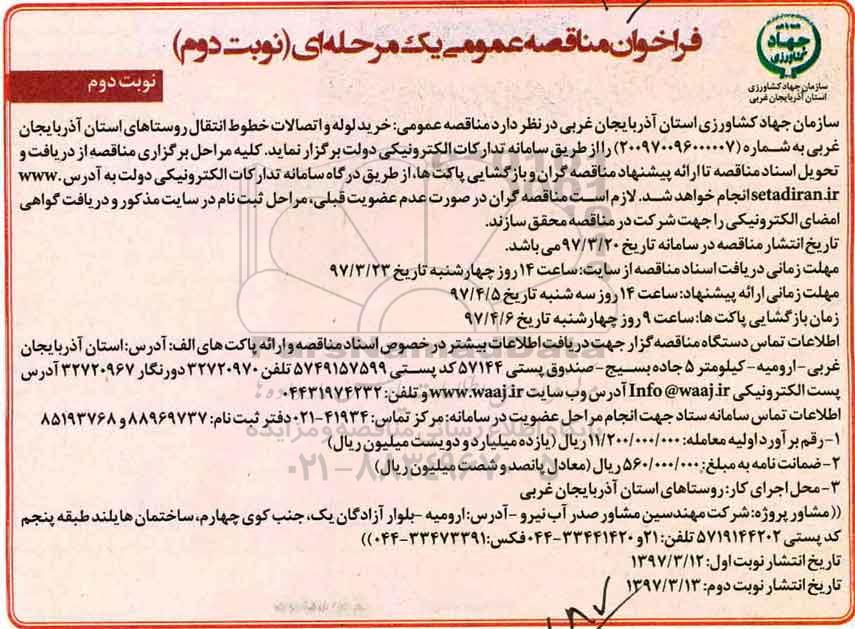 فراخوان مناقصه عمومی یک مرحله‌ای (نوبت دوم)
جهاد کشاورزی
سازمان جهاد کشاورزی
استان آذربایجان غربی
نوبت دوم
سازمان جهاد کشاورزی استان آذربایجان غربی در نظر دارد مناقصه عمومی: خرید لوله و اتصالات خطوط انتقال روستاهای استان آذربایجان
غربی به شماره (۲۰۰۹۷۰۰۹۶۰۰۰۰۰۷) را از طریق سامانه تدارکات الکترونیکی دولت برگزار نماید. کلیه مراحل برگزاری مناقصه از دریافت و
تحویل اسناد مناقصه تا ارائه پیشنهاد مناقصه گران و بازگشایی پاکت ها، از طریق درگاه سامانه تدارکات الکترونیکی دولت به آدرس www.
setadiran.ir انجام خواهد شد. لازم است مناقصه گران در صورت عدم عضویت قبلی، مراحل ثبت نام در سایت مذکور و دریافت گواهی
امضای الکترونیکی را جهت شرکت در مناقصه محقق سازند.
تاریخ انتشار مناقصه در سامانه تاریخ ۹۷/۳/۲۰ می باشد.
مهلت زمانی دریافت اسناد مناقصه از سایت: ساعت ۱۴ روز چهارشنبه تاریخ ۹۷/۳/۲۳
مهلت زمانی ارائه پیشنهاد: ساعت ۱۴ روز سه شنبه تاریخ ۹۷/۴/۵
زمان بازگشایی پاکت ها: ساعت ۹ روز چهارشنبه تاریخ ۹۷/۴/۶
اطلاعات تماس دستگاه مناقصه گزار جهت دریافت اطلاعات بیشتر در خصوص اسناد مناقصه و ارائه پاکت های الف: آدرس: استان آذربایجان
غربی - ارومیه - کیلومتر ۵ جاده بسیج - صندوق پستی ۵۷۱۴۴ کد پستی ۵۷۴۹۱۵۷۵۹۹ تلفن ۳۲۷۲۰۹۷۰ دورنگار ۳۲۷۲۰۹۶۷ آدرس
پست الکترونیکی Info@waaj.ir آدرس وب سایت www.waaj.ir و تلفن: ۰۴۴۳۱۹۷۴۲۳۲
اطلاعات تماس سامانه ستاد جهت انجام مراحل عضویت در سامانه: مرکز تماس: ۴۱۹۳۴-۰۲۱ دفتر ثبت نام: ۸۸۹۶۹۷۳۷ و ۸۵۱۹۳۷۶۸
۱- رقم برآورد اولیه معامله: ۱۱/۲۰۰/۰۰۰/۰۰۰ ریال (یازده میلیارد و دویست میلیون ریال)
۲- ضمانت نامه به مبلغ: ۵۶۰/۰۰۰/۰۰۰ ریال (معادل پانصد و شصت میلیون ریال)
۳- محل اجرای کار: روستاهای استان آذربایجان غربی
((مشاور پروژه: شرکت مهندسین مشاور صدر آب نیرو - آدرس: ارومیه - بلوار آزادگان یک، جنب کوی چهارم، ساختمان هایلند طبقه پنجم
کد پستی ۵۷۱۹۱۴۴۲۰۲ تلفن: ۲۱ و ۳۳۴۴۱۴۲۰-۰۴۴ فکس: ۳۳۴۷۳۳۹۱-۰۴۴))
تاریخ انتشار نوبت اول: ۱۳۹۷/۳/۱۲
تاریخ انتشار نوبت دوم: ۱۳۹۷/۳/۱۳
ParsNamadData
پایگاه اطلاع رسانی مناقصه و مزایده
۰۲۱-۸۸۳۴۹۶۷۰-۵